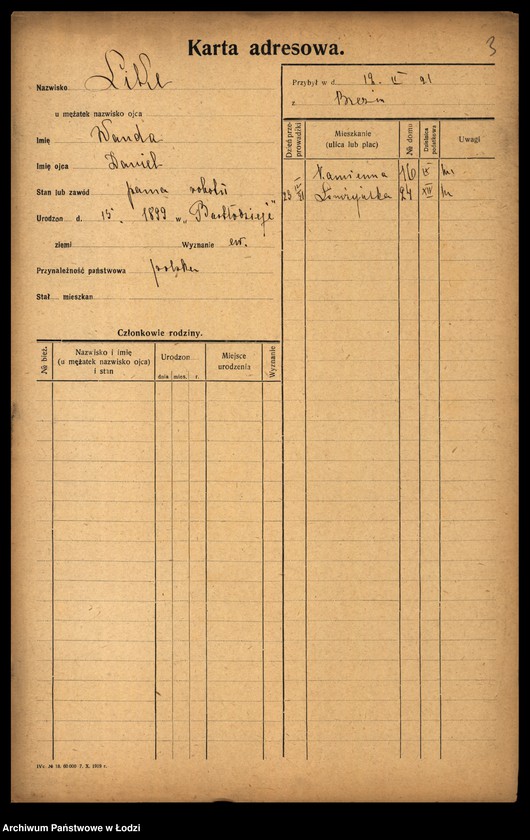 Karta adresowa.
3
Nazwisko Litke
u mężatek nazwisko ojca
Imię Wanda
Imię ojca Daniel
Stan lub zawód panna
Urodzon d. 15. 1899 w
ziemi Wyznanie ew.
Przynależność państwowa polska
Stał. mieszkan
Przybył w d. 19. II 21
z
Dzień przeprowadzki
Mieszkanie
(ulica lub plac)
№ domu
Dzielnica podatkowa
Uwagi
Kamienna 16 IX
23 24 XII
Członkowie rodziny.
№ bież.
Nazwisko i imię
(u mężatek nazwisko ojca)
i stan
Urodzon
dnia mies. r.
Miejsce
urodzenia
Wyznanie
Archiwum Państwowe w Łodzi